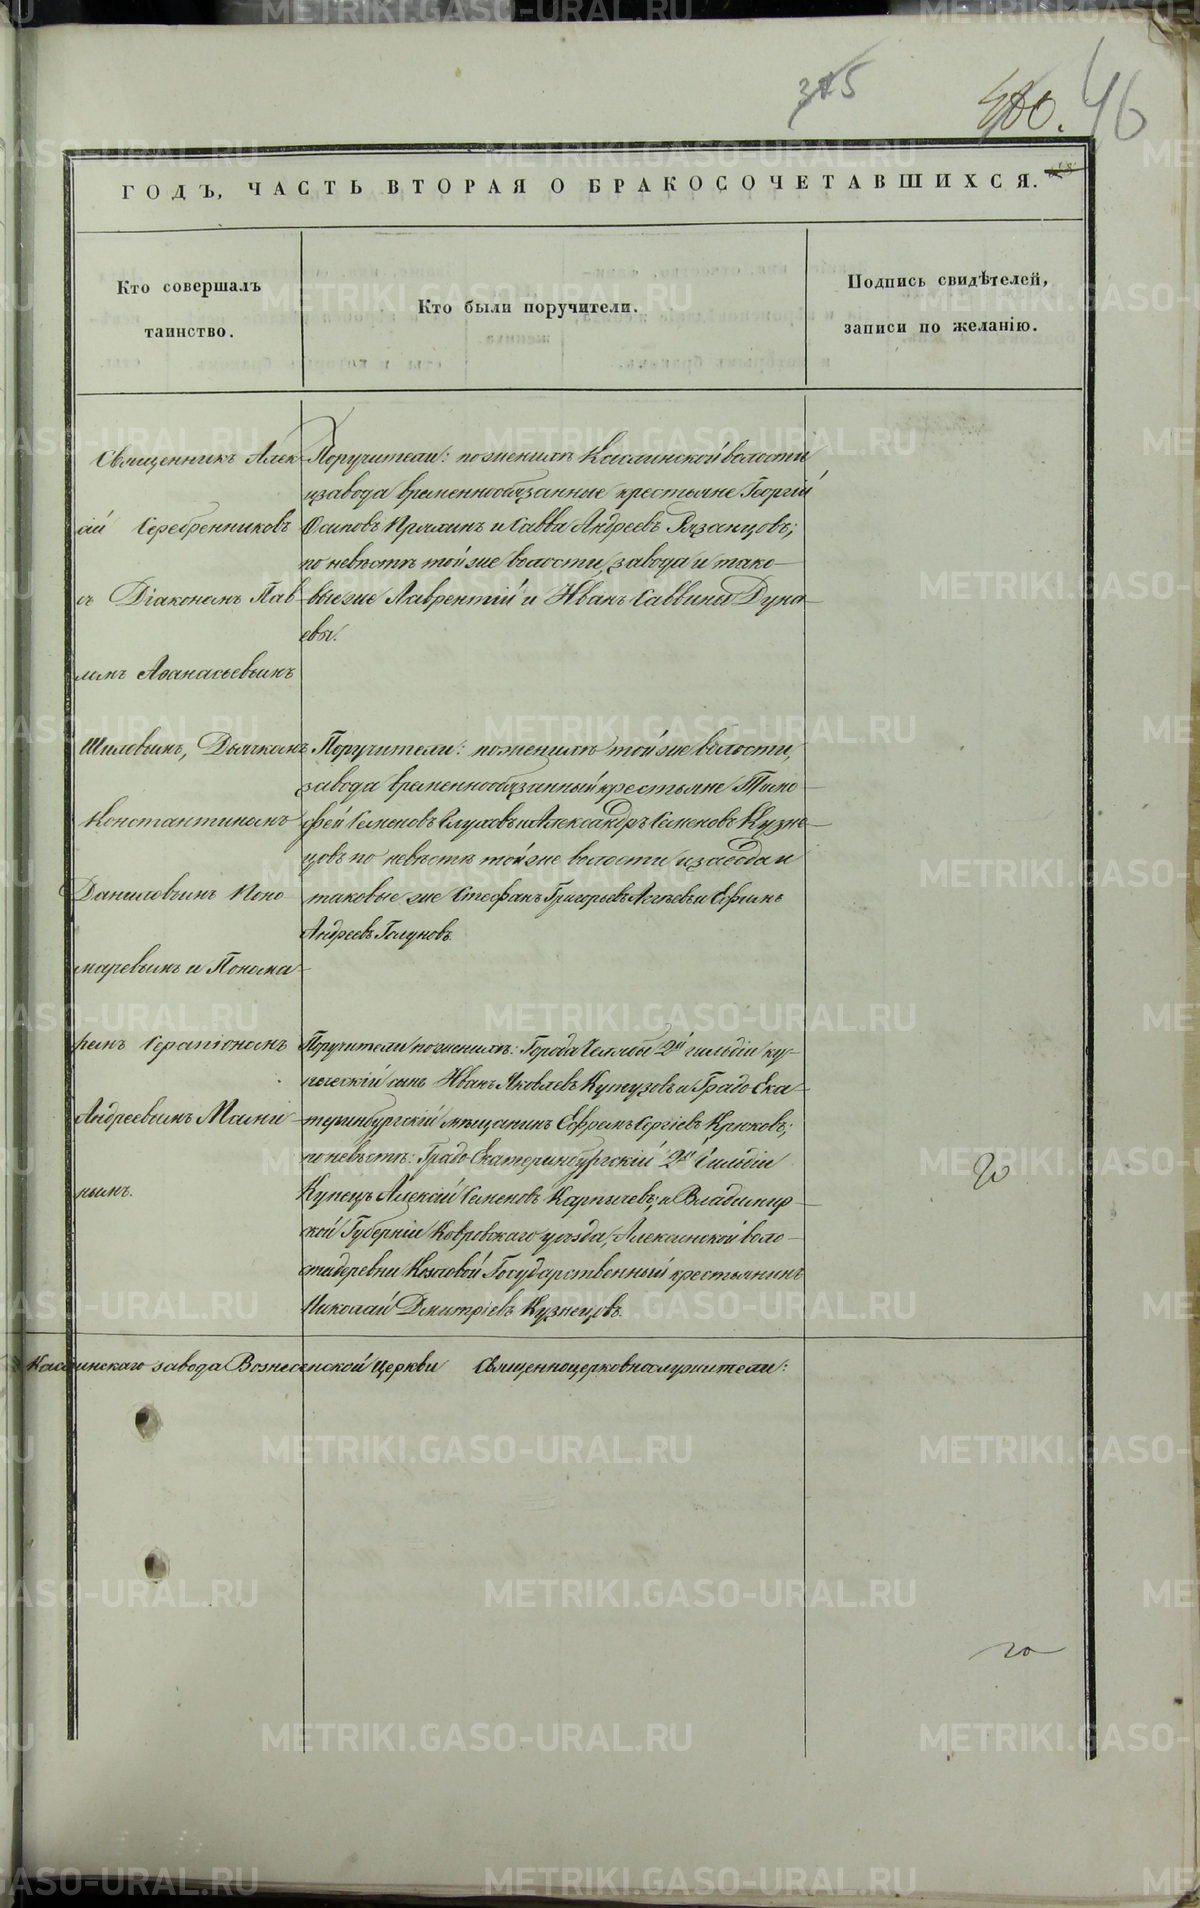 46
ГОДЪ, ЧАСТЬ ВТОРАЯ О БРАКОСОЧЕТАВШИХСЯ.
Кто совершалъ
таинство.
Кто были поручители.
Подпись свидѣтелей,
записи по желанію.
Священникъ Алек-
сѣй Серебренниковъ
съ Діакономъ Пав-
ломъ Аѳанасьевымъ
Шиловымъ, Дьячкомъ
Константиномъ
Даниловымъ Поно-
маревымъ и Понома-
ремъ Серапіономъ
Андреевымъ Мами-
нымъ.
Поручители: по женихѣ Каслинской волости
и завода временнообязанные крестьяне Георгій
Осиповъ Пряхинъ и Савва Андреевъ Рязанцовъ;
по невѣстѣ той же волости, завода и тако-
вые же Лаврентій и Иванъ Саввины Дуна-
евы.
Поручители: по женихѣ той же волости,
завода временнообязанный крестьяне Тимо-
фей Семеновъ Глуховъ и Александръ Семеновъ Кузне-
цовъ по невѣстѣ той же волости и завода и
таковые же Стефанъ Григорьевъ и Ефимъ
Андреевъ Голуновъ.
Поручители по женихѣ: Города Челябы 2й гильдіи ку-
печескій сынъ Иванъ Яковлевъ Кутузовъ и Градо Ека-
теринбургскій мѣщанинъ Ефремъ Сергіевъ Крюковъ;
по невѣстѣ: Градо-Екатеринбургскій 2й Гильдіи
Купецъ Алексій Семеновъ Карпычевъ, и Владимир-
ской Губерніи Ковровскаго уѣзда, Алексинской воло-
сти деревни Козловой Государственный крестьянинъ
Николай Дмитріевъ Кузнецовъ.
Каслинскаго завода Вознесенской Церкви Священноцерковнослужители:
METRIKI.GASO-URAL.RU